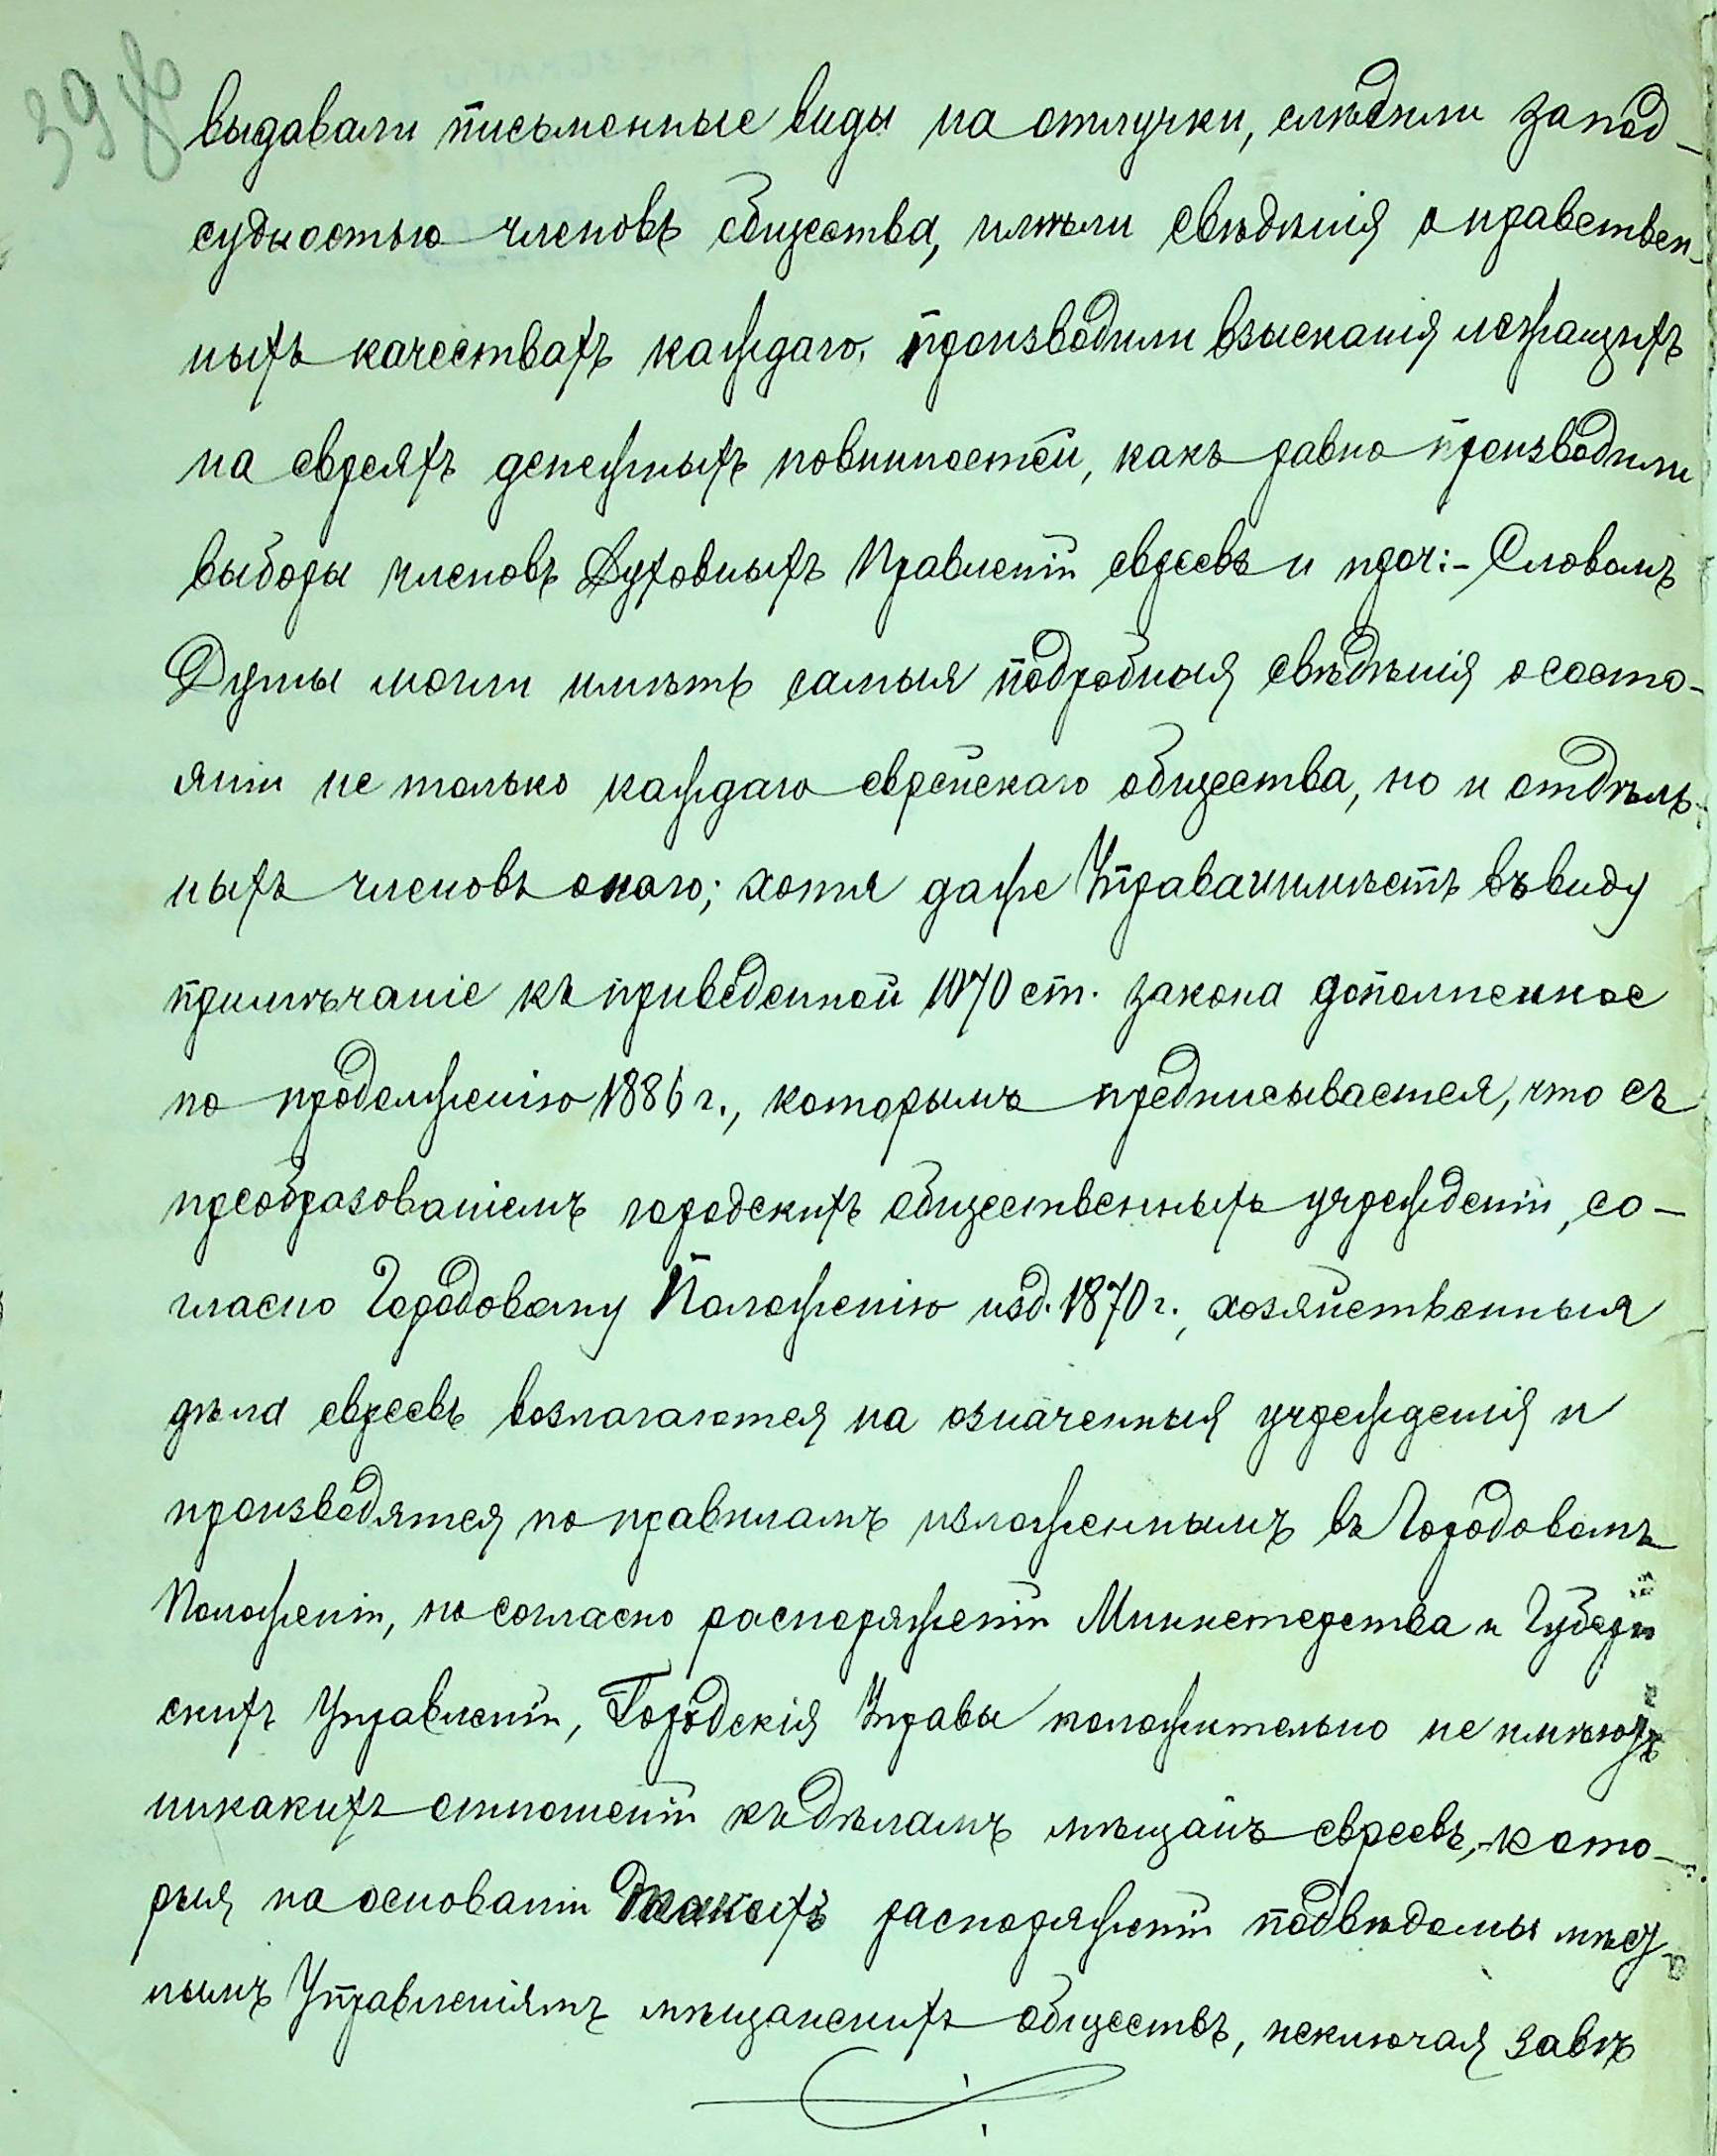 39 об
выдавали письменные виды на отлучки, слѣдили за под-
судностью членовъ общества, имѣли свѣдѣнія о нравствен-
ныхъ качествахъ каждаго, производили взысканія лежащихъ
на евреяхъ денежныхъ повинностей, какъ равно производили
выборы членовъ Духовныхъ Правленій евреевъ и проч:- Словомъ
Думы могли имѣть самыя подробныя свѣдѣнія о состо-
яніи не только каждаго еврейскаго общества, но и отдѣль-
ныхъ членовъ онаго; хотя даже Управа и имѣетъ въ виду
примѣчаніе къ приведенной 1070 ст. закона дополненное
по продолженію 1886 г., которымъ предписывается, что съ
преобразованіемъ городскихъ общественныхъ учрежденій, со-
гласно Городовому Положенію изд. 1870 г., хозяйственныя
дѣла евреевъ возлагаются на означенныя учрежденія и
производятся по правиламъ изложеннымъ въ Городовомъ
Положеніи, но согласно распоряженій Министерства и Губерн
скихъ Управленій, Городскія Управы положительно не имѣютъ
никакихъ отношеній къ дѣламъ мѣщанъ евреевъ, кото-
рыя, на основаніи такихъ распоряженій подвѣдомы мѣст-
нымъ Управленіямъ мѣщанскихъ обществъ, исключая завѣ